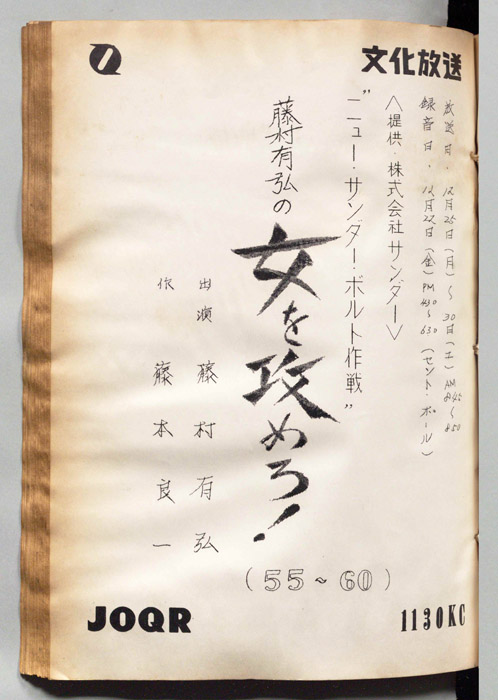 文化放送
放送日. 12月25日(月)～30日(土) AM 8:45～8:50
録音日. 12月22日(金) PM 4:30～6:30 (セント・ポール)
〈提供・株式会社サンダー〉
"ニュー・サンダー・ボルト作戦"
藤村有弘の
女を攻めろ!
(55~60)
出演 藤村有弘
作 藤本良一
JOQR
1130KC